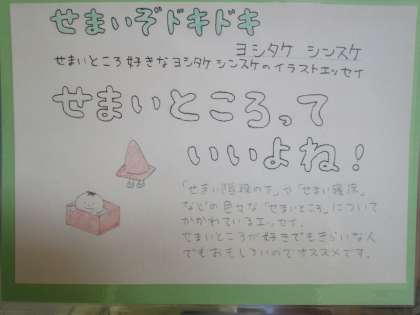 せまいぞドキドキ
ヨシタケ シンスケ
せまいところ好きなヨシタケシンスケのイラストエッセイ
せまいところって
いいよね!
「せまい階段の下」や「せまい寝床」
などの色々な「せまいところ」について
かかれているエッセイ。
せまいところが好きでもきらいな人
でもおもしろいのでオススメです。